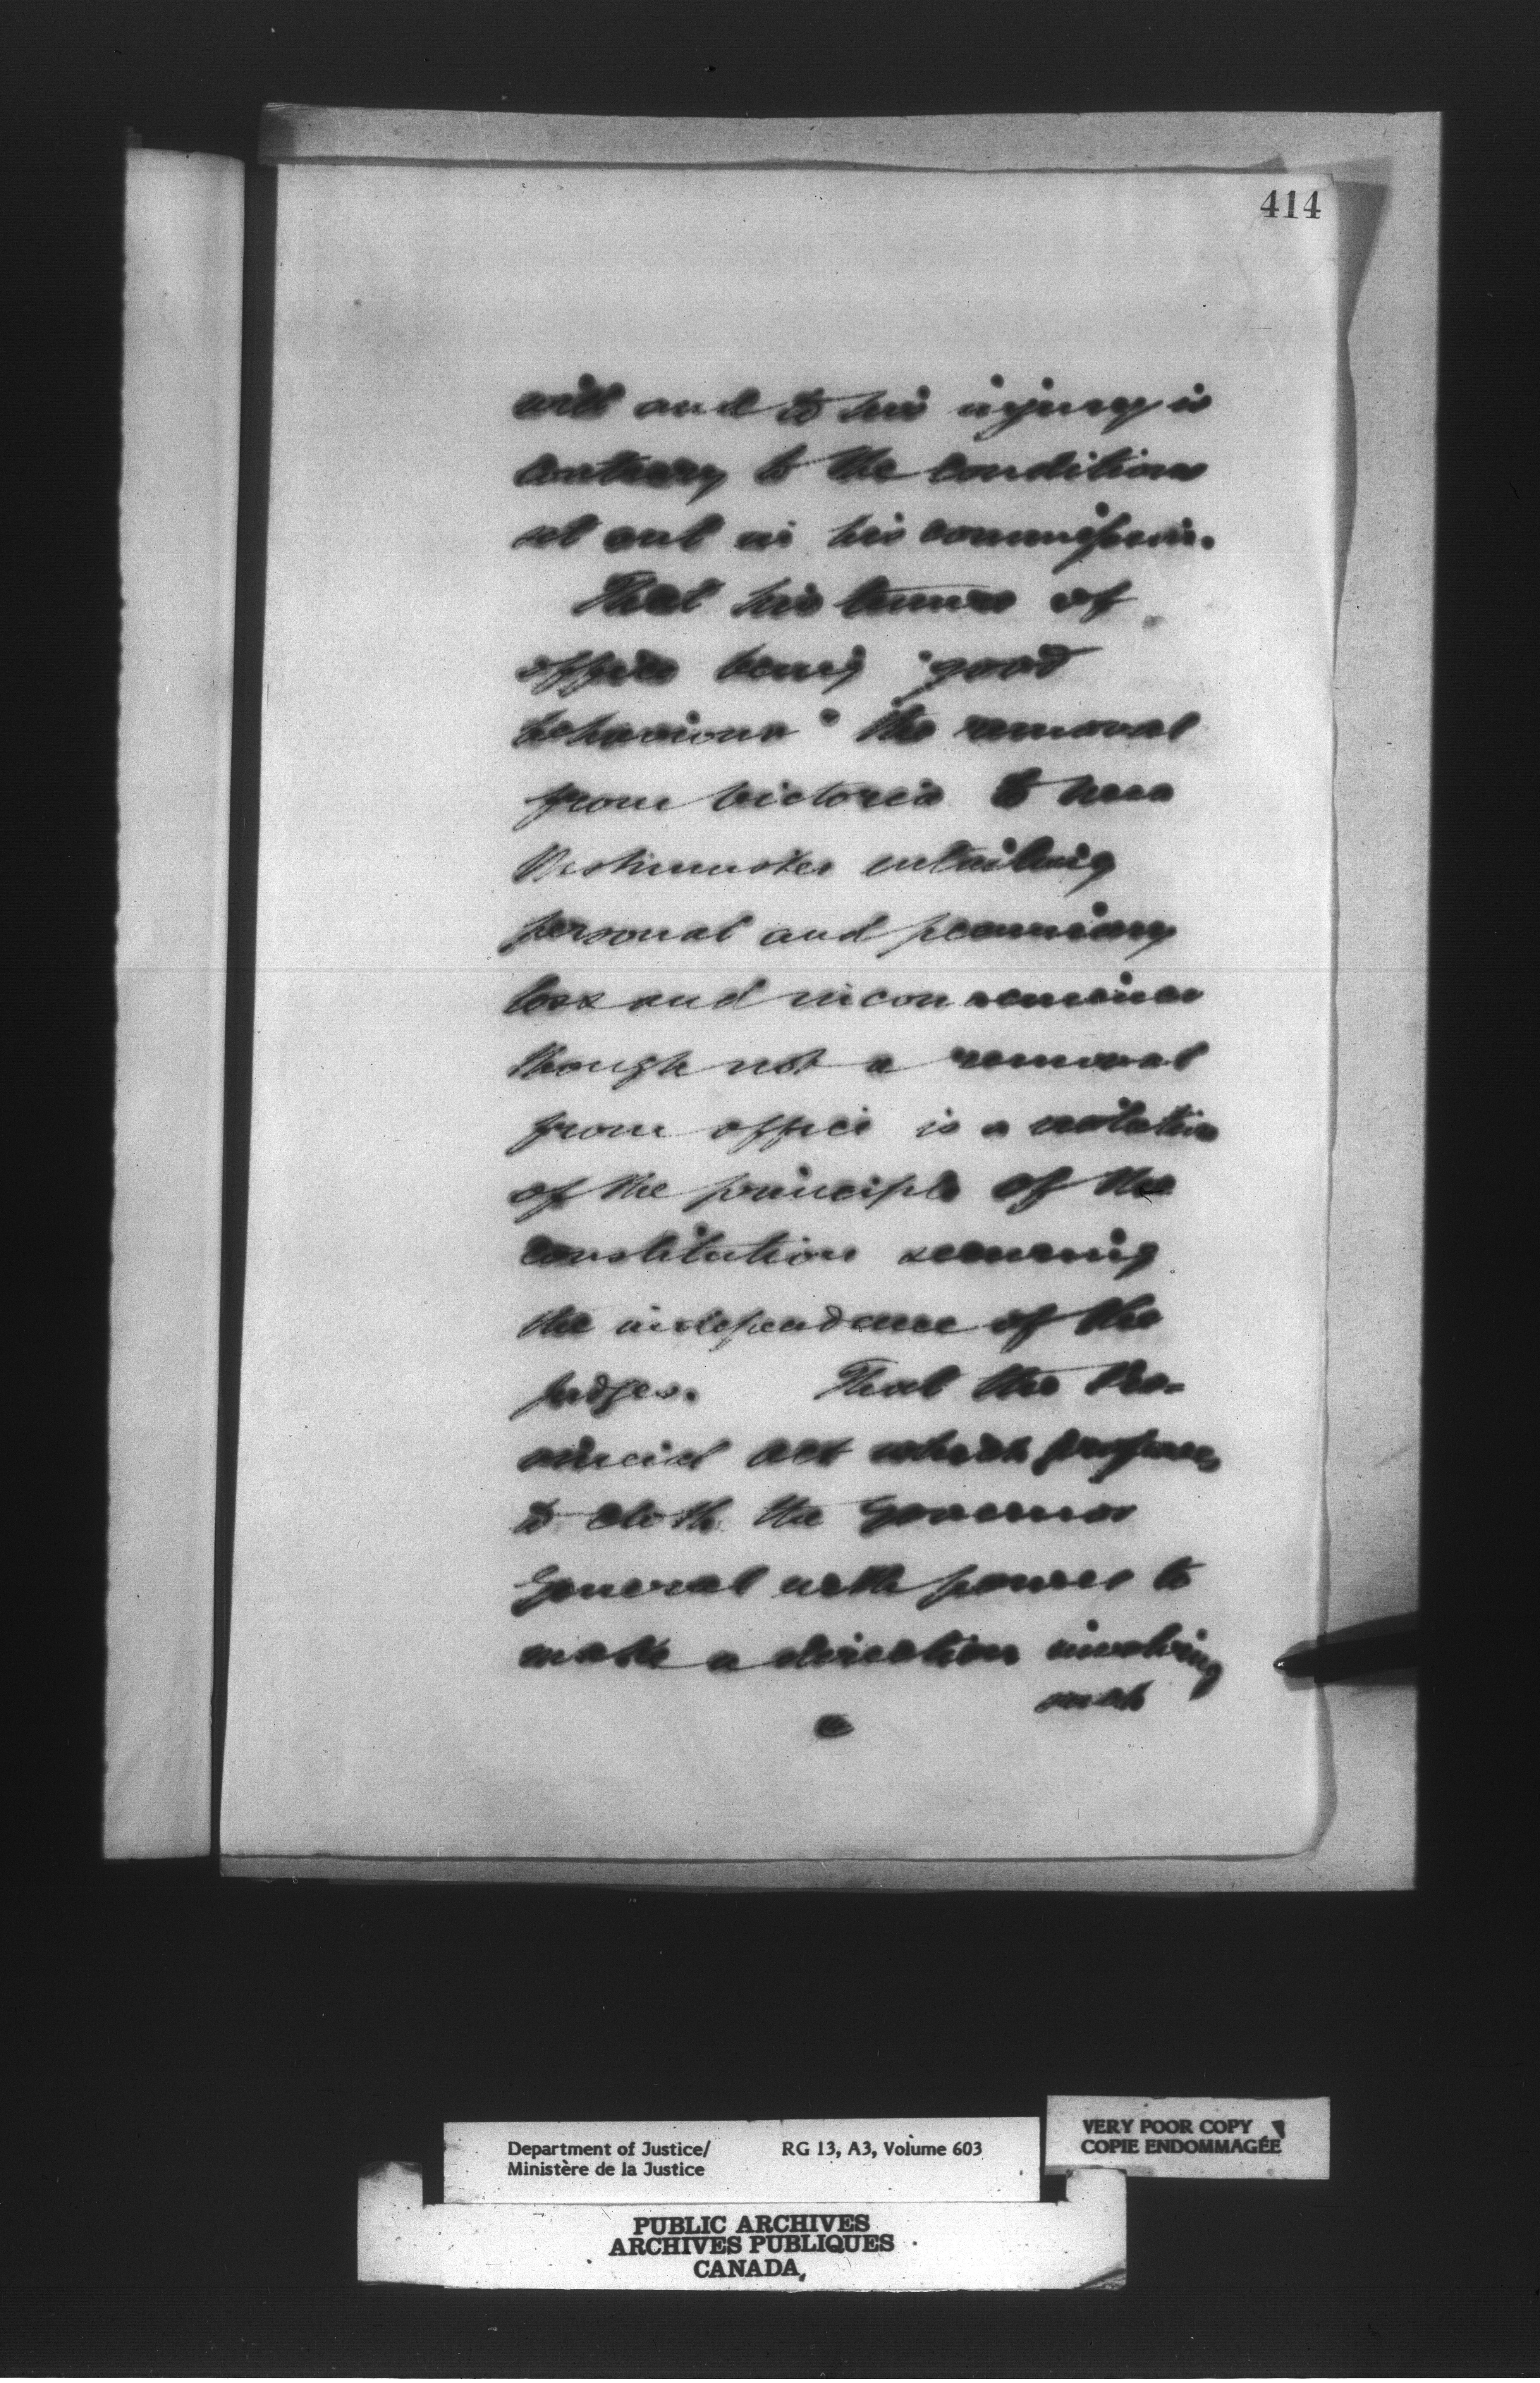 414
will and to his injury is
contrary to the conditions
set out in his commission.
That his tenure of
office being "good
behaviour" the removal
from Victoria to New
Westminster entailing
personal and pecuniary
loss and inconvenience
though not a removal
from office is a violation
of the principle of the
constitution securing
the independence of the
judges. That the Pro-
vincial Act which proposes
to clothe the Governor
General with power to
make a direction involving
such
Department of Justice/
Ministère de la Justice
RG 13, A3, Volume 603
VERY POOR COPY
COPIE ENDOMMAGÉE
PUBLIC ARCHIVES
ARCHIVES PUBLIQUES
CANADA